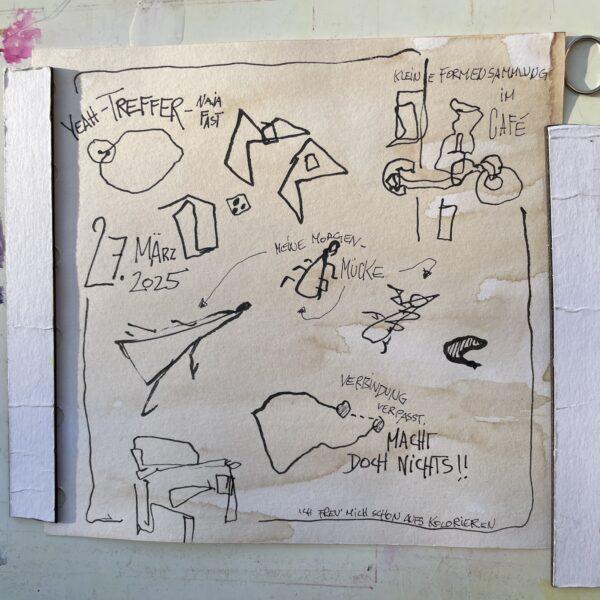 KLEINE FORMENSAMMLUNG
IM
CAFÉ
YEAH-TREFFER-NAJA
FAST
27. MÄRZ
2025
MEINE MORGEN-
MÜCKE
VERBINDUNG
VERPASST.
MACHT
DOCH NICHTS!!
ICH FREU' MICH SCHON AUFS KOLORIEREN